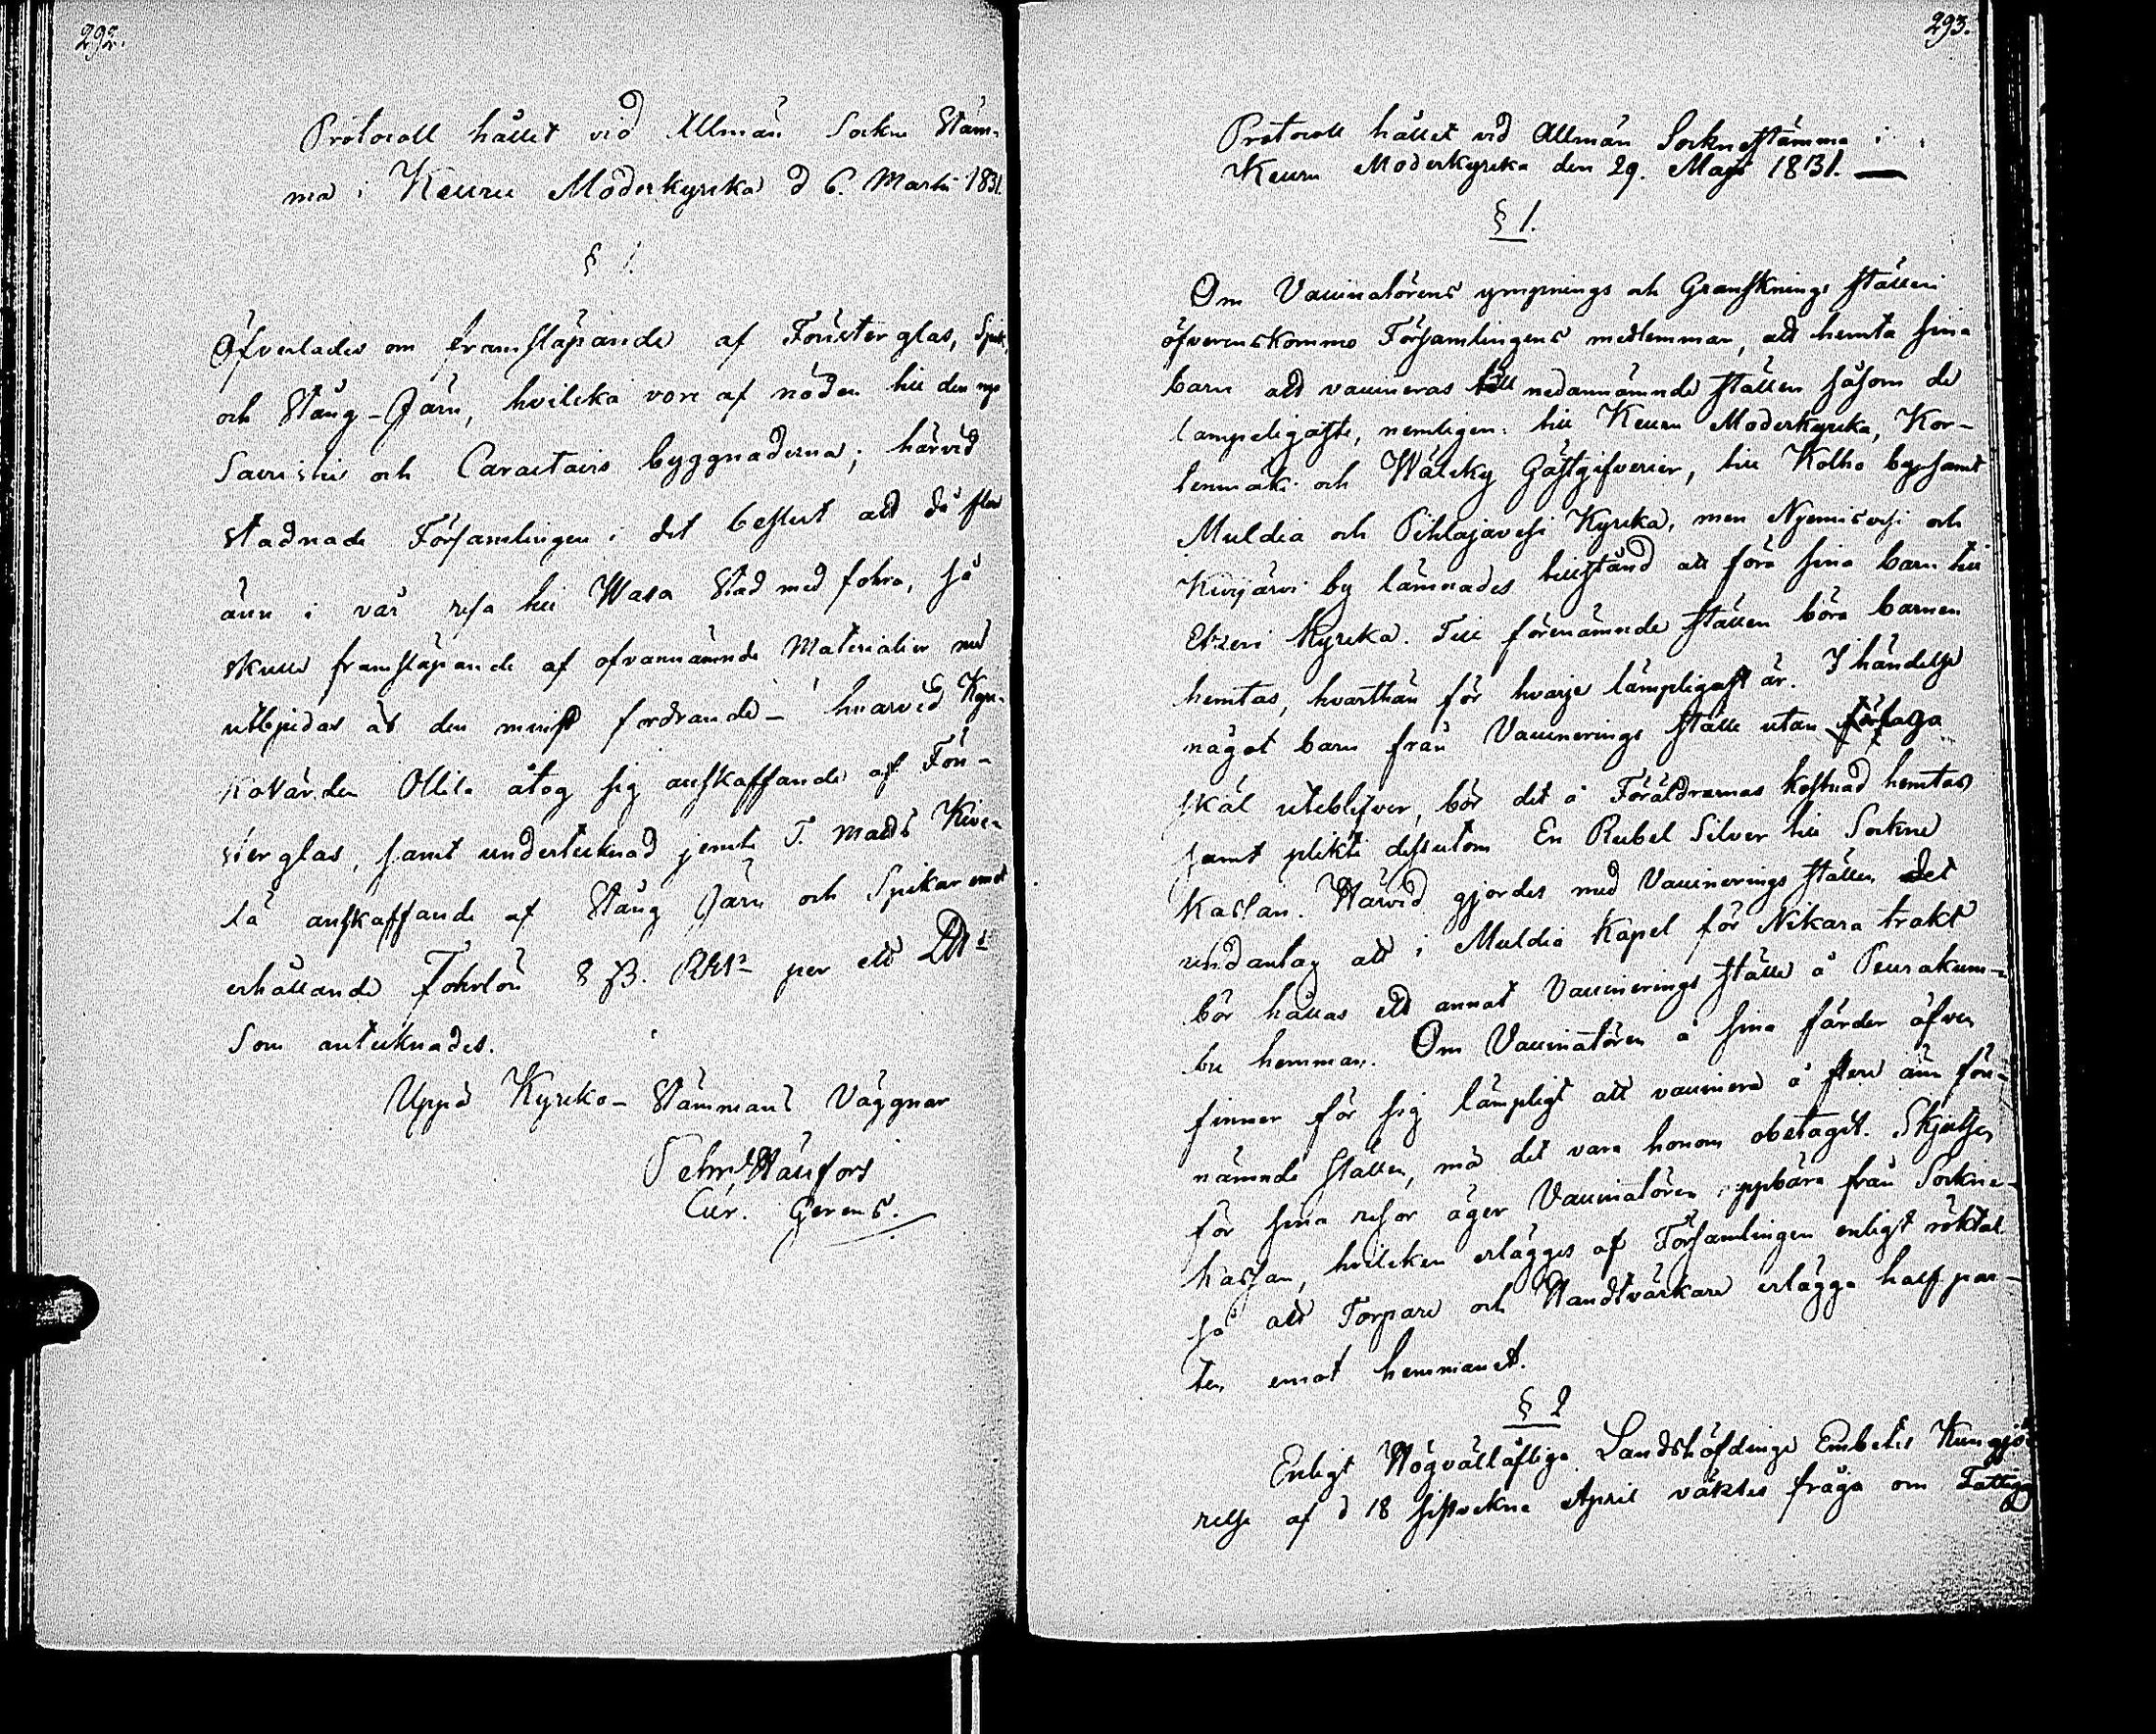 292.
Protocoll hållet vid Allmän Sockne Stäm-
ma i Keuru Moderkyrcka d 6. Martii 1831.
§ 1.
Öfverlades om framsläpande af Fönster glas, Spik,
och Stång-Järn, hvilcka vore af nöden till den nya
och byggnaderna; härvid
stadnade Församlingen i det beslut att då flere
änn i vår resa till Wasa Stad med fohra, så
skulle framsläpande af ofvannämnde Materialier
utbjudas åt den minst fordrande – hvarvid Kyr-
kovärden Ollila åtog sig anskaffande af Fön-
ster glas, samt undertecknad jemte T. Matts Kive-
lä anskaffande af Stång Järn och Spikar emot
erhållande Fohrlön 8 per ett
Som antecknades.
Uppå Kyrcko-Stämmans Väggnar
Pehr Hällfors
Cur. Gerens.
293.
Protocoll hållet vid Allmän Socknestämma i
Keuru Moderkyrcka den 29. Maji 1831.
§ 1.
Om Vaccinatörens ympnings och Gransknings ställen
öfverenskommo Församlingens medlemmar, att hemta sina
barn att vaccineras till nedannämnde ställen såsom de
lämpeligaste, nemligen: till Keuru Moderkyrcka, Kor-
tenmäki och Gästgifverier, till Kolho by samt
Muldia och Pihlajavesi Kyrcka, men Nyemisvesi och
by lämnades tillstånd att föra sina barn till
Etzeri Kyrcka. Till förenämnde ställen böra barnen
hemtas, hvarthän för hvarje lämpligast är. I händelse
något barn från Vaccinerings ställe utan förfalla
skäl uteblifver, bör det å Föräldrarnas kostnad hemtas
samt plikte dessutom En Rubel Silver till Sockne
Kassan. Härvid gjordes med Vaccinerings ställen det
undantag att i Muldia Kapel för Nikara trakt
bör hållas ett annat Vaccinerings ställe å Peurakum-
bu hemman. Om Vaccinatören å sina färder äfven
finner för sig lämpligt att vaccinera å flere änn för-
nämnde ställen, må det vara honom obetagit. Skjutsen
för sina resor äger Vaccinatören uppbära från Sockne-
kassan, hvilcken erlägges af Församlingen enligt röktal
så att Torpare och Handtvärkare erlägga half par-
ten emot hemmanet.
§ 2
Enligt Högvällåflige Landshöfdinge Embetes Kungjö-
relse af d 18 sistvekne April väktes fråga om Fattig